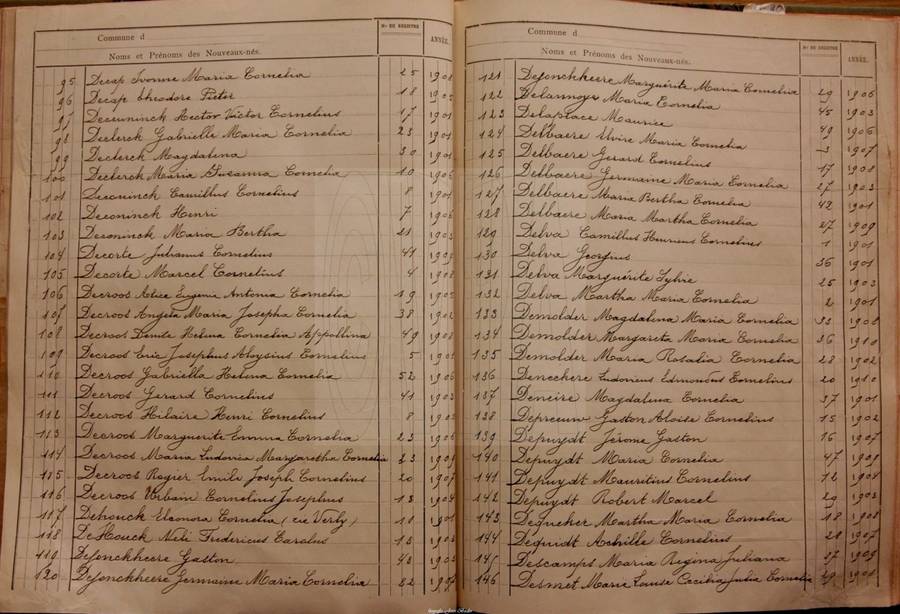 Commune d
Nos DE REGISTRE
ANNÉE.
Noms et Prénoms des Nouveaux-nés.
95 Decap Ivonne Maria Cornelia 25 1908
96 Decap Theodore Pieter 18
97 Deceuninck Hector Victor Cornelius 17 1901
98 Declerck Gabrielle Maria Cornelia 23 1901
99 Declerck Magdalena 30 1901
100 Declerck Maria Susanna Cornelia 10 1906
101 Deconinck Camillus Cornelius 8 1901
102 Deconinck Henri 7
103 Deconinck Maria Bertha 21
104 Decorte Julianus Cornelius 41
105 Decorte Marcel Cornelius 4 1908
106 Decroos Alice Eugenia Antonia Cornelia 19
107 Decroos Angela Maria Josepha Cornelia 38 1902
108 Decroos Denise Helena Cornelia Appollina 49 1908
109 Decroos Eric Josephus Aloysius Cornelius 5 1901
110 Decroos Gabriella Helena Cornelia 52 1906
111 Decroos Gerard Cornelius 41 1903
112 Decroos Hilaire Henri Cornelius 8
113 Decroos Marguerite Emma Cornelia 23 1906
114 Decroos Maria Ludovica Margaretha Cornelia 23
115 Decroos Rogier Emile Joseph Cornelius 20 1907
116 Decroos Urbain Cornelius Josephus 13 1904
117 Dehouck Eleonora Cornelia (zie Verly) 11 1901
118 De Houck Fredericus Carolus 18
119 Dejonckheere Gaston 43
120 Dejonckheere Germaine Maria Cornelia 22 1907
Commune d
Nos DE REGISTRE
ANNÉE.
Noms et Prénoms des Nouveaux-nés.
121 Dejonckheere Marguérite Maria Cornelia 29 1906
122 Delannoye Maria Cornelia 45 1903
123 Delaplace Maurice 49 1906
124 Delbaere Elvire Maria Cornelia 3 1907
125 Delbaere Gerard Cornelius 17 1908
126 Delbaere Germaine Maria Cornelia 27 1903
127 Delbaere Maria Bertha Cornelia 42 1901
128 Delbaere Maria Martha Cornelia 27 1909
129 Delva Camillus Henricus Cornelius 1 1901
130 Delva Georgius 36 1901
131 Delva Marguérite Sylvie 25 1903
132 Delva Martha Maria Cornelia 2 1901
133 Demolder Magdalena Maria Cornelia 33 1908
134 Demolder Margareta Maria Cornelia 36 1910
135 Demolder Maria Rosalia Cornelia 28 1902
136 Ludovicus Edmondus Cornelius 20 1910
137 Deneire Magdalena Cornelia 37 1901
138 Depreeuw Gaston Aloïse Cornelius 15 1902
139 Depuydt Jerome Gaston 16 1907
140 Depuydt Maria Cornelia 47
141 Depuydt Mauritius Cornelius 12 1904
142 Depuydt Robert Marcel 29 1903
143 Dequeker Martha Maria Cornelia 18 1908
144 Dequidt Achille Cornelius 21 1907
145 Descamps Maria Regina Juliana 27 1909
146 Desmet Marie Louise Cecilia Julia Cornelia 49 1901